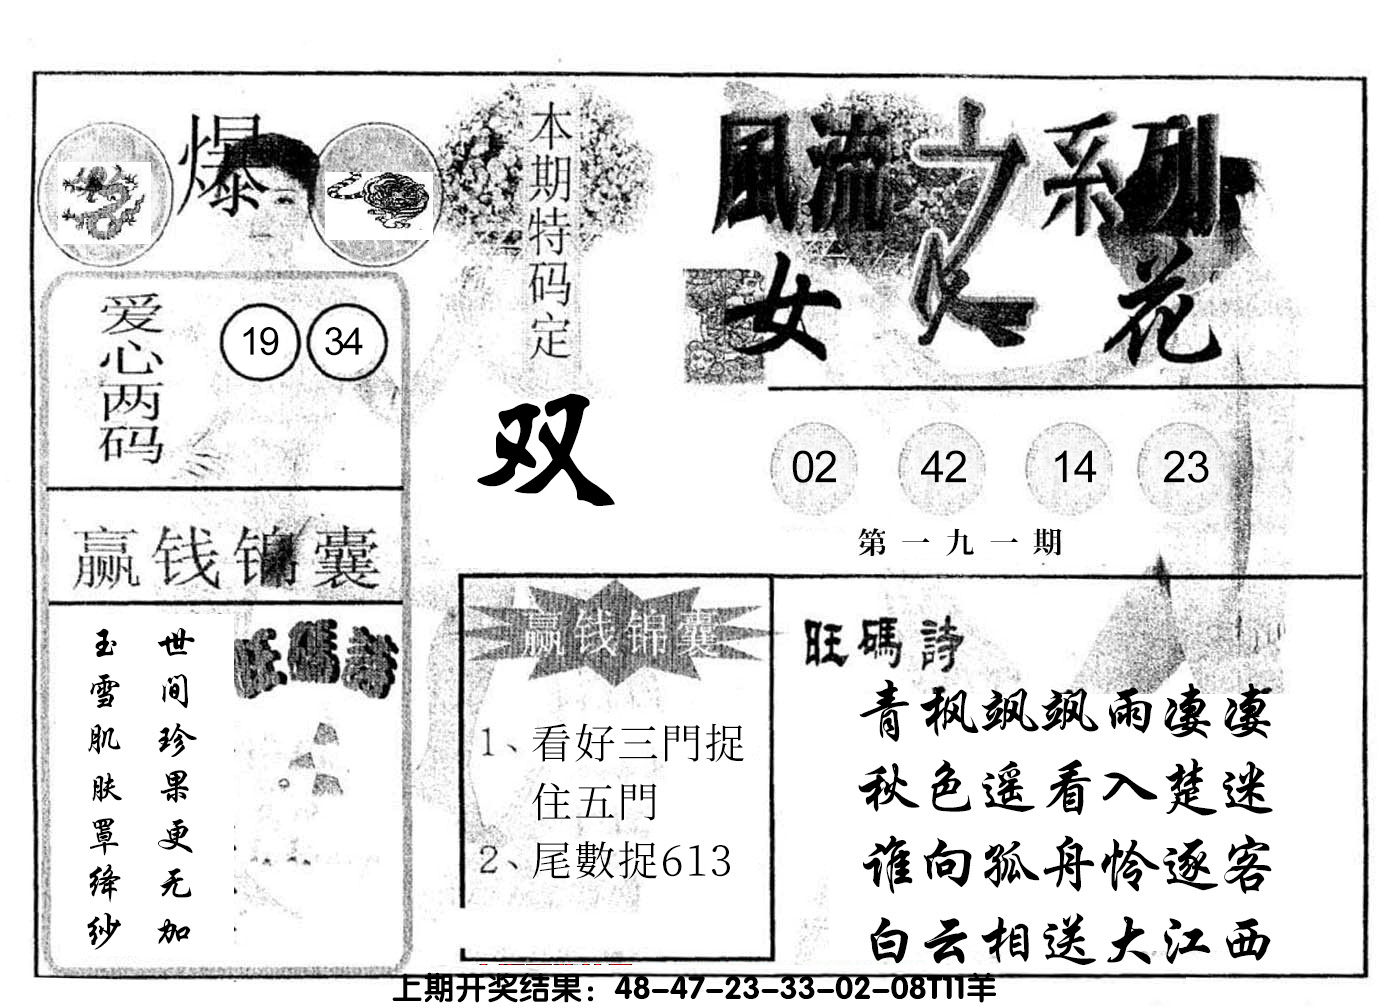 爆
本期特码定
双
風流之系列
女人花
爱心两码
19 34
02 42 14 23
第一九一期
赢钱锦囊
旺碼詩
世间珍果更无加
玉雪肌肤罩绛纱
赢钱锦囊
1、看好三門捉
住五門
2、尾數捉613
旺碼詩
青枫飒飒雨凄凄
秋色遥看入楚迷
谁向孤舟怜逐客
白云相送大江西
上期开奖结果：48-47-23-33-02-08T11羊